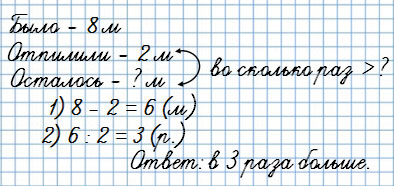 Было - 8 м
Отпилили - 2 м
Осталось - ? м
во сколько раз > ?
1) 8 - 2 = 6 (м)
2) 6 : 2 = 3 (р.)
Ответ: в 3 раза больше.